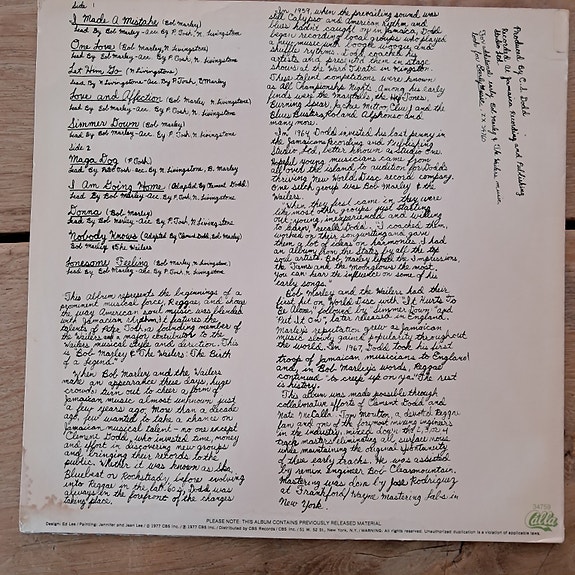 Side 1
I Made A Mistake (Bob Marley)
Lead By Bob Marley - Acc. By P. Tosh, N. Livingstone
One Love (Bob Marley, N. Livingstone)
Lead By Bob Marley - Acc. By P. Tosh, N. Livingstone
Let Him Go (N. Livingstone)
Lead By N. Livingstone - Acc. By P. Tosh, B. Marley
Love and Affection (Bob Marley, N. Livingstone)
Lead By Bob Marley - Acc. By P. Tosh, N. Livingstone
Simmer Down (Bob Marley)
Lead By Bob Marley - Acc. By P. Tosh, N. Livingstone
Side 2
Maga Dog (P. Tosh)
Lead By Peter Tosh - Acc. By N. Livingstone, B. Marley
I Am Going Home (Adapted By Clement Dodd)
Lead By Bob Marley - Acc. By P. Tosh, N. Livingstone
Donna (Bob Marley)
Lead By Bob Marley - Acc. By P. Tosh, N. Livingstone
Nobody Knows (Adapted By Clement Dodd, Bob Marley)
Bob Marley & The Wailers
Lonesome Feeling (Bob Marley, N. Livingstone)
Lead By Bob Marley - Acc. By P. Tosh, N. Livingstone
This Album represents the beginnings of a
prominent musical force, Reggae, and shows
the way American soul music was blended
with Jamaican rhythm. It features the
talents of Peter Tosh, a founding member of
the Wailers and a major contributor to the
Wailers musical style and direction. This
is Bob Marley & "The Wailers: The Birth
of a legend."
When Bob Marley and the Wailers
make an appearance these days, huge
crowds turn out to cheer a form of
Jamaican music almost unknown just
a few years ago. More than a decade
ago, few wanted to take a chance on
Jamaican musical talent - no one except
Clement Dodd, who invested time, money
and effort in discovering new groups
and bringing their records to the
public. Whether it was known as Ska,
Bluebeat or Rocksteady before evolving
into Reggae in the late 60's, Dodd was
always in the forefront of the changes
taking place.
In 1959, when the prevailing sound was
still Calypso and American Rhythm and
blues hadn't caught on in Jamaica, Dodd
began recording local groups who played
their music with boogie woogie and
shuffle rhythms. Dodd coached his
artists and presented them in stage
shows at the Ward Theatre in Kingston.
These talent competitions were known
as All Championship Nights. Among his early
finds were the Maytals, the Heptones,
Burning Spear, Jackie Mittoo, Clue J and the
Blues Busters, Roland Alphonso and
many more.
In 1964, Dodd invested his last penny in
the Jamaica Recording and Publishing
Studio Ltd., better known as Studio One.
Hopeful young musicians came from
all over the island to audition for Dodd's
thriving New World Disc record company.
One such group was Bob Marley & the
Wailers.
"When they first came in they were
like most other groups just starting
out; young, inexperienced and willing
to learn," recalls Dodd. "I coached them,
worked on their songwriting and gave
them a lot of ideas on harmonies. I had
an album from the States by all the top
soul artists. Bob Marley liked the Impressions,
the Tams and the Moonglows the most.
You can hear the influence on some of his
early songs."
Bob Marley and the Wailers had their
first hit on World Disc with "It Hurts To
Be Alone," followed by "Simmer Down" and
"Put It On," later released in England.
Marley's reputation grew as Jamaican
music slowly gained popularity throughout
the world. In 1967, Dodd took his first
troop of Jamaican musicians to England
and, in Bob Marley's words, Reggae
continued "to creep up on ya." The rest
is history.
This album was made possible through
collaborative efforts of Clement Dodd and
Nate McCalla. Tom Moulton, a devoted Reggae
fan and one of the foremost mixing engineers
in the industry, mixed down the 2 track
track masters eliminating all surface noise
while maintaining the original spontaneity
of these early tracks. He was assisted
by remix engineer Bob Clearmountain.
Mastering was done by José Rodriguez
at Frankford/Wayne Mastering Labs in
New York.
Produced by C.S. Dodd
Recorded at Jamaica Recording and Publishing
Studio Ltd.
For additional early Bob Marley & The Wailers music,
look for Early Music, ZX 34760
34759
Calla
PLEASE NOTE: THIS ALBUM CONTAINS PREVIOUSLY RELEASED MATERIAL.
Design: Ed Lee / Painting: Jennifer and Jean Lee / © 1977 CBS Inc. / ℗ 1977 CBS Inc. / Distributed by CBS Records / CBS Inc. / 51 W. 52 St., New York, N.Y. / WARNING: All rights reserved. Unauthorized duplication is a violation of applicable laws.